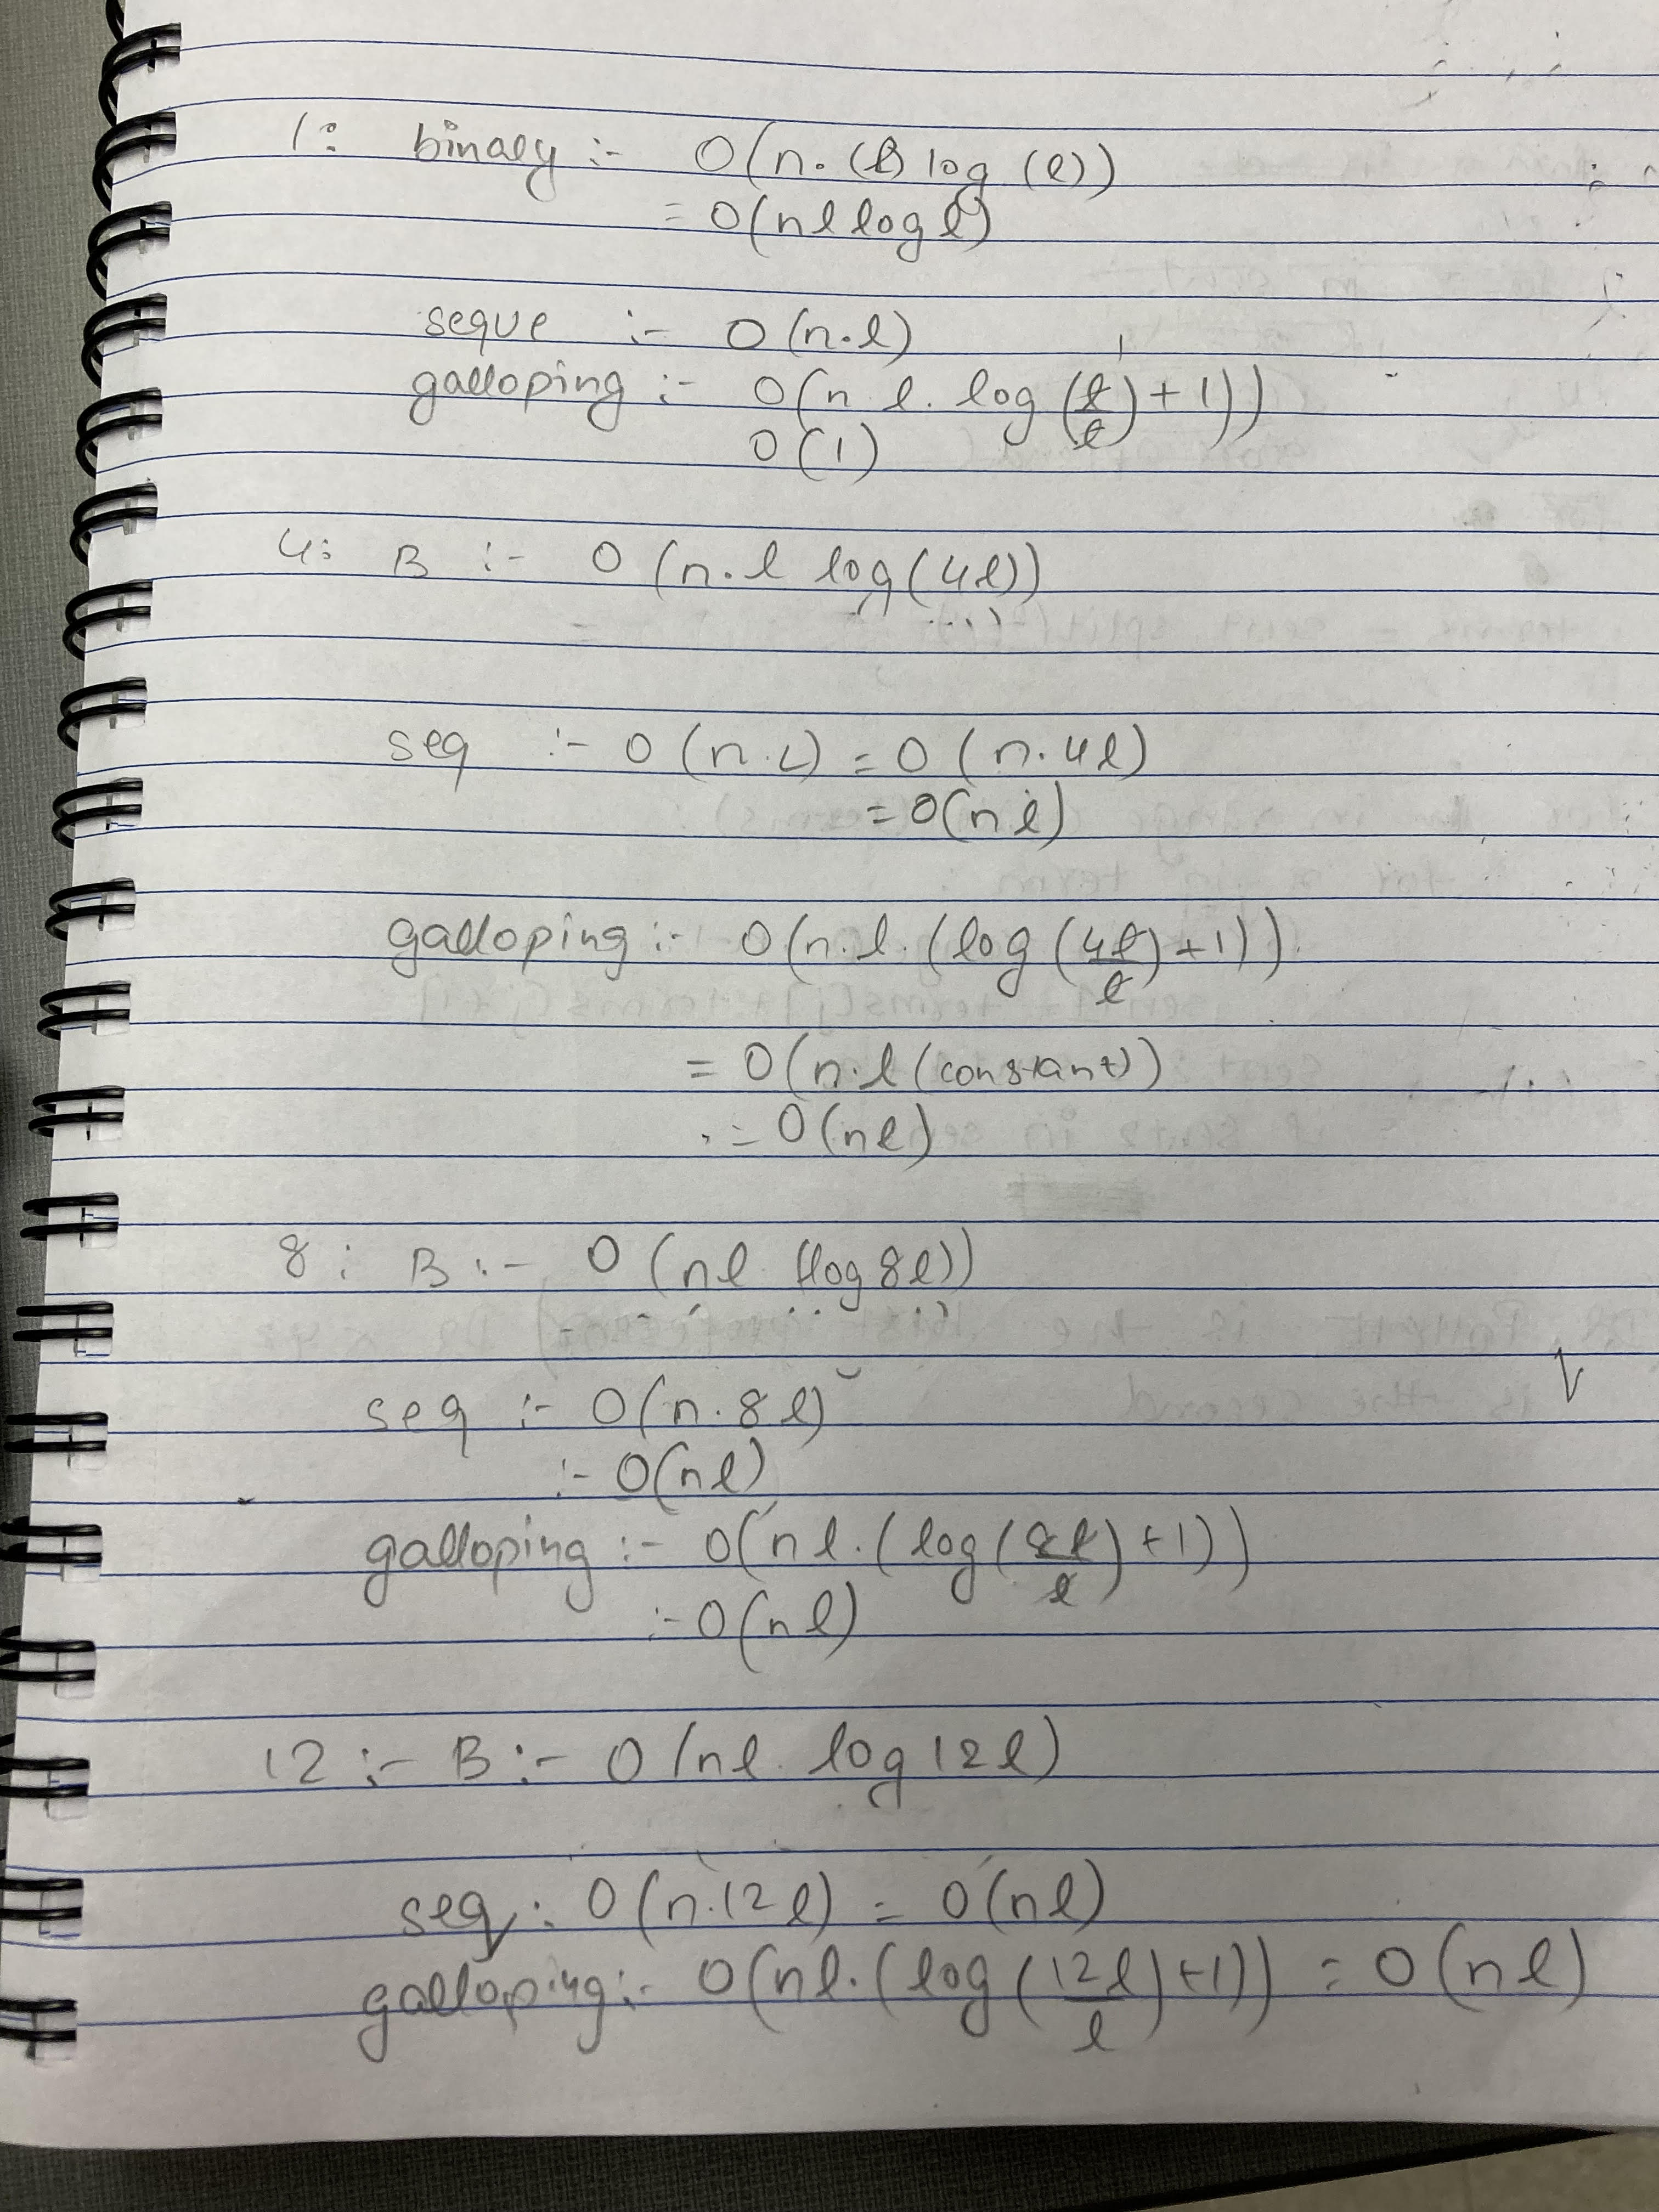 1: binary :- O(n. (l) log (l))
= O(nl log l)
seque :- O(n.l)
galloping :- O(n l. log (l/l) + 1))
O(1)
4: B :- O (n.l log(4l))
seq :- O (n.L) = O (n.4l)
= O(nl)
galloping :- O(n.l. (log (4l/l) +1))
= O(n.l (constant))
= O(nl)
8: B :- O (nl (log 8l))
seq :- O(n.8l)
:- O(nl)
galloping :- O(nl. (log (8l/l) +1))
:- O(nl)
12 :- B :- O (nl. log 12l)
seq : O (n.12l) = O(nl)
galloping :- O(nl. (log (12l/l) +1)) = O(nl)